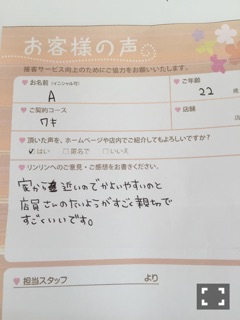 お客様の声
接客サービス向上のためにご協力をお願いいたします。
お名前（イニシャル可）
A
ご年齢
22
歳
ご契約コース
ワキ
店舗
頂いた声を、ホームページや店内でご紹介してもよろしいですか？
はい 匿名で いいえ
リンリンへのご意見・ご感想をお書きください。
家から近いのでかよいやすいのと
店員さんのたいようがすごく親切で
すごくいいです。
担当スタッフ より